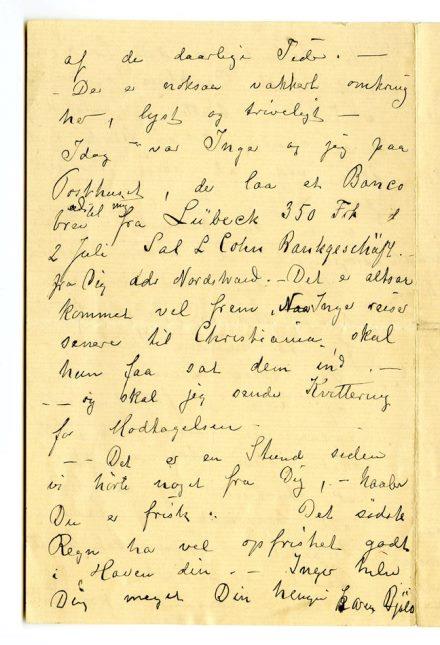 af de daarlige Tider. —
- Der er noksaa vakkert omkring
her, lyst og triveligt —
Idag var Inger og jeg paa
Posthuset, der laa et Banco
brev til mig fra Lübeck 350 Frk
2 Juli Sal L Cohn Bankgeschäft. -
fra Dig Nordstrand. - Det er altsaa
kommet vel frem, Naar Inger reiser
senere til Christiania, skal
hun faa sat dem ind. —
-- og skal jeg sende Kvittering
for Modtagelsen -
-- Det er en Stund siden
vi hørte noget fra Dig, - haaber
Du er frisk. Det sidste
Regn har vel opfrisket godt
i Haven din. — Inger hilser
Dig meget Din hengivne Karen Bjølstad